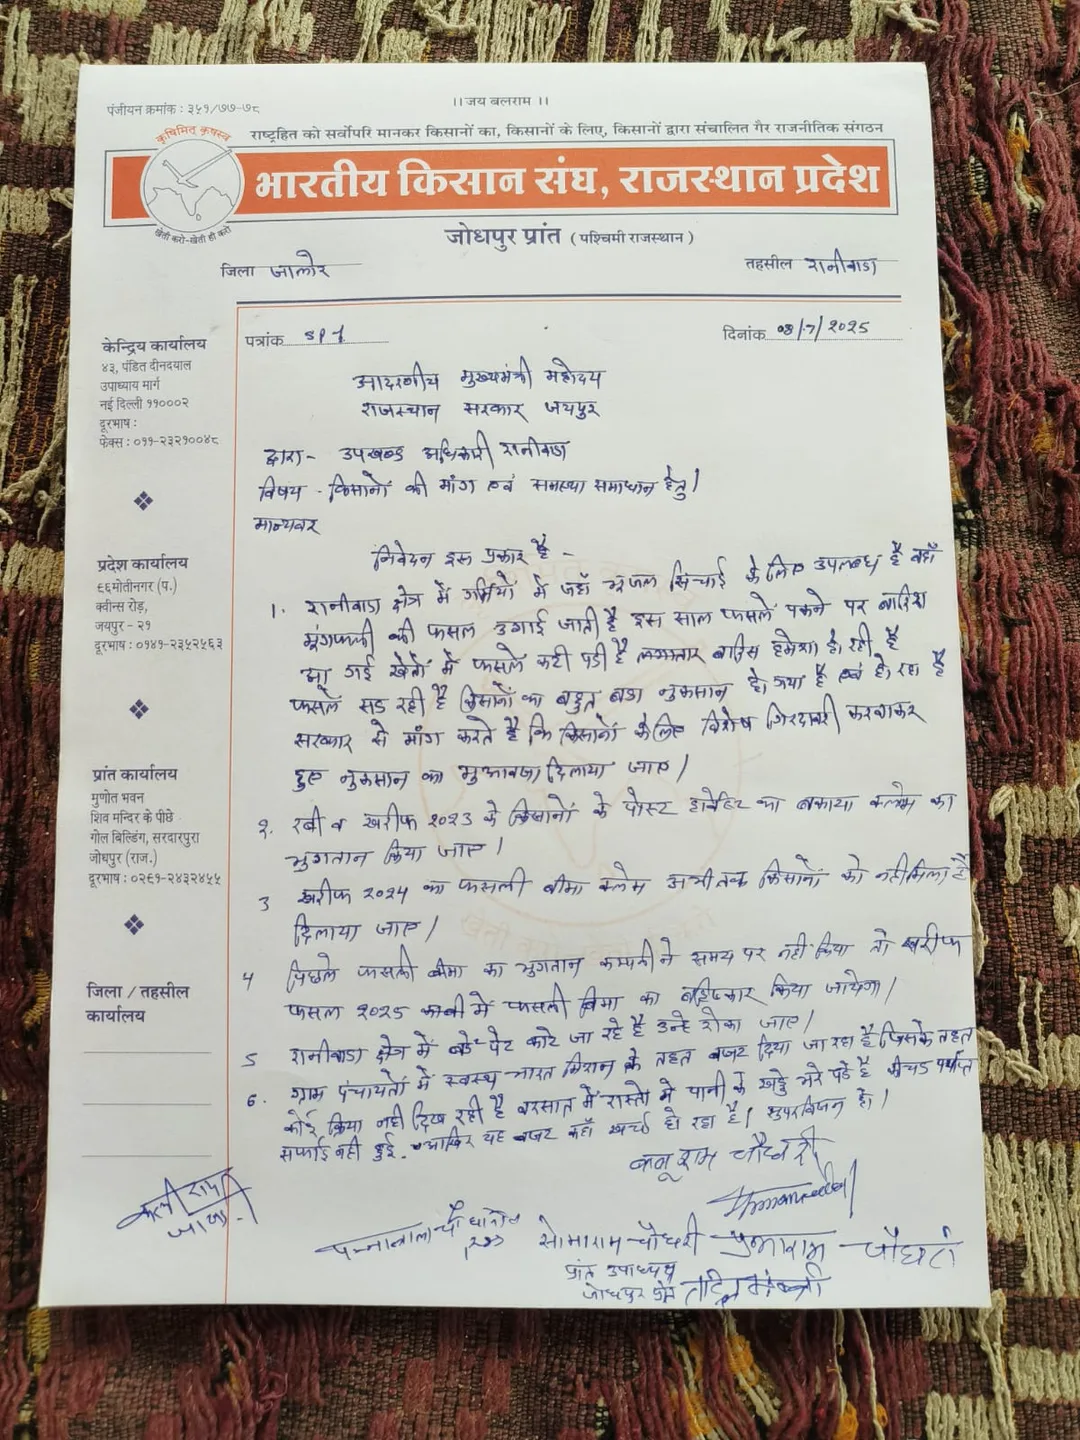 पंजीयन क्रमांक : ३५१/७७-७८
।। जय बलराम ।।
कृषिमित् कृषस्व
राष्ट्रहित को सर्वोपरि मानकर किसानों का, किसानों के लिए, किसानों द्वारा संचालित गैर राजनीतिक संगठन
भारतीय किसान संघ, राजस्थान प्रदेश
खेती करो-खेती ही करो
जोधपुर प्रांत (पश्चिमी राजस्थान)
जिला जालोर
तहसील रानीवाडा
पत्रांक SP1
दिनांक 08/7/2025
केन्द्रिय कार्यालय
४३, पंडित दीनदयाल
उपाध्याय मार्ग
नई दिल्ली ११०००२
दूरभाष :
फेक्स : ०११-२३२१००४८
प्रदेश कार्यालय
९६मोतीनगर (प.)
क्वीन्स रोड़,
जयपुर - २१
दूरभाष : ०१४१-२३५२५६३
प्रांत कार्यालय
मुणोत भवन
शिव मन्दिर के पीछे
गोल बिल्डिंग, सरदारपुरा
जोधपुर (राज.)
दूरभाष : ०२९१-२४३२४५५
जिला / तहसील
कार्यालय
आदरणीय मुख्यमंत्री महोदय
राजस्थान सरकार जयपुर
द्वारा- उपखण्ड अधिकारी रानीवाडा
विषय - किसानों की मांग एवं समस्या समाधान हेतु।
मान्यवर
निवेदन इस प्रकार है -
1. रानीवाडा क्षेत्र में गर्मियों में जहाँ भूजल सिंचाई के लिए उपलब्ध है वहाँ
मूंगफली की फसल उगाई जाती है इस साल फसलें पकने पर बारिश
आ गई खेतों में फसलें कटी पडी है लगातार बारिस हमेशा हो रही है
फसलें सड रही है किसानों का बहुत बडा नुकसान हो गया है एवं हो रहा है
सरकार से मांग करते है कि किसानों के लिए विशेष गिरदावरी करवाकर
हुए नुकसान का मुआवजा दिलाया जाए।
2. रबी व खरीफ 2023 के किसानों के पोस्ट हार्वेस्टिंग का बकाया क्लेम का
भुगतान किया जाए।
3 खरीफ 2024 का फसली बीमा क्लेम अभीतक किसानों को नहीं मिला है
दिलाया जाए।
4 पिछले फसली बीमा का भुगतान कम्पनी ने समय पर नही किया तो खरीफ
फसल 2025 काबी में फसली बिमा का बहिष्कार किया जायेगा।
5 रानीवाडा क्षेत्र में बडे पेट काटे जा रहे है उन्हे रोका जाए।
6. ग्राम पंचायतों में स्वस्थ भारत मिशन के तहत बजट दिया जा रहा है जिसके तहत
कोई क्रिया नही दिख रही है बरसात में रास्तो मे पानी के खड्डे भरे पडे है कीचड पर्याप्त
सफाई नही हुई. आखिर यह बजट कहाँ खर्च हो रहा है। सुपरविजन हो।
कनू राम चौधरी
सोमाराम चौधरी
प्रभाराम चौधरी
प्रांत उपाध्यक्ष
जोधपुर प्रांत